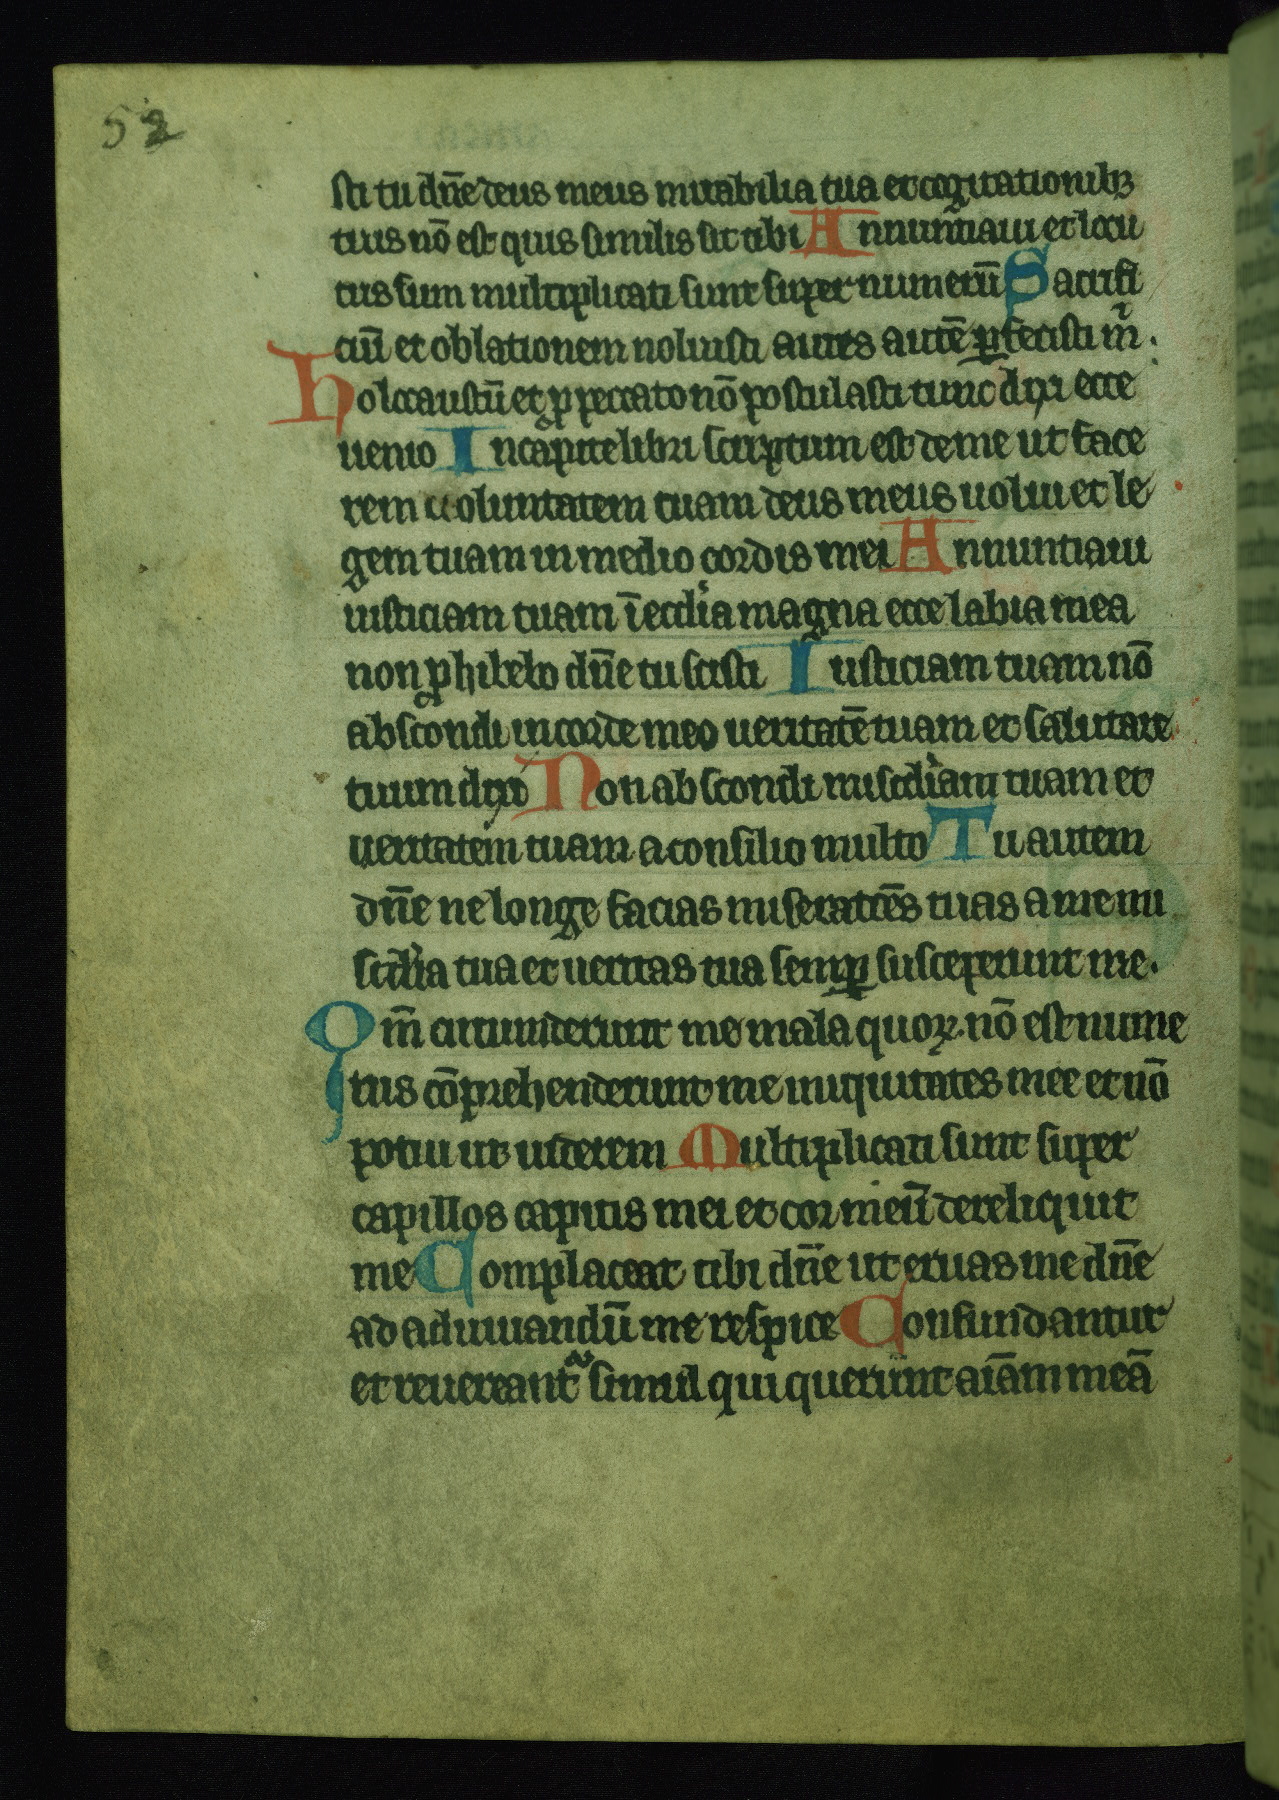 52
sti tu dn̄e deus meus mirabilia tua et cogitationibꝫ
tuis nō est quis similis sit tibi Annun̄tiaui et locu
tus sum multiplicati sunt super numerū Sacrifi
ciū et oblationem noluisti aures autē ꝑfecisti m̄.
holocaustū et ꝓ peccato nō postulasti tunc dixi ecce
uenio In capite libri scriptum est de me ut face
rem uoluntatem tuam deus meus uolui et le
gem tuam in medio cordis mei Annuntiaui
iusticiam tuam ī eccl'ia magna ecce labia mea
non ꝓhibebo dn̄e tu scisti Iusticiam tuam nō
abscondi in corde meo ueritatē tuam et salutare
tuum dixi Non abscondi miscd'iam tuam et
ueritatem tuam a consilio multo Tu autem
dn̄e ne longe facias miseratōes tuas a me mi
scd'ia tua et ueritas tua semꝑ susceperunt me.
Qm̄ circumderunt me mala quoꝝ nō est nume
rus cōprehenderunt me iniquitates mee et nō
potui ut uiderem Multiplicati sunt super
capillos capitis mei et cor meū dereliquit
me Complaceat tibi dn̄e ut eruas me dn̄e
ad adiuuandū me respice Confundantur
et reuereant᷑ simul qui querunt aīam meā